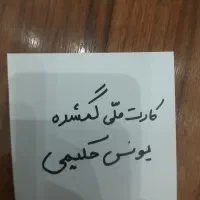 کارت ملّی گمشده
یونس حکیمی